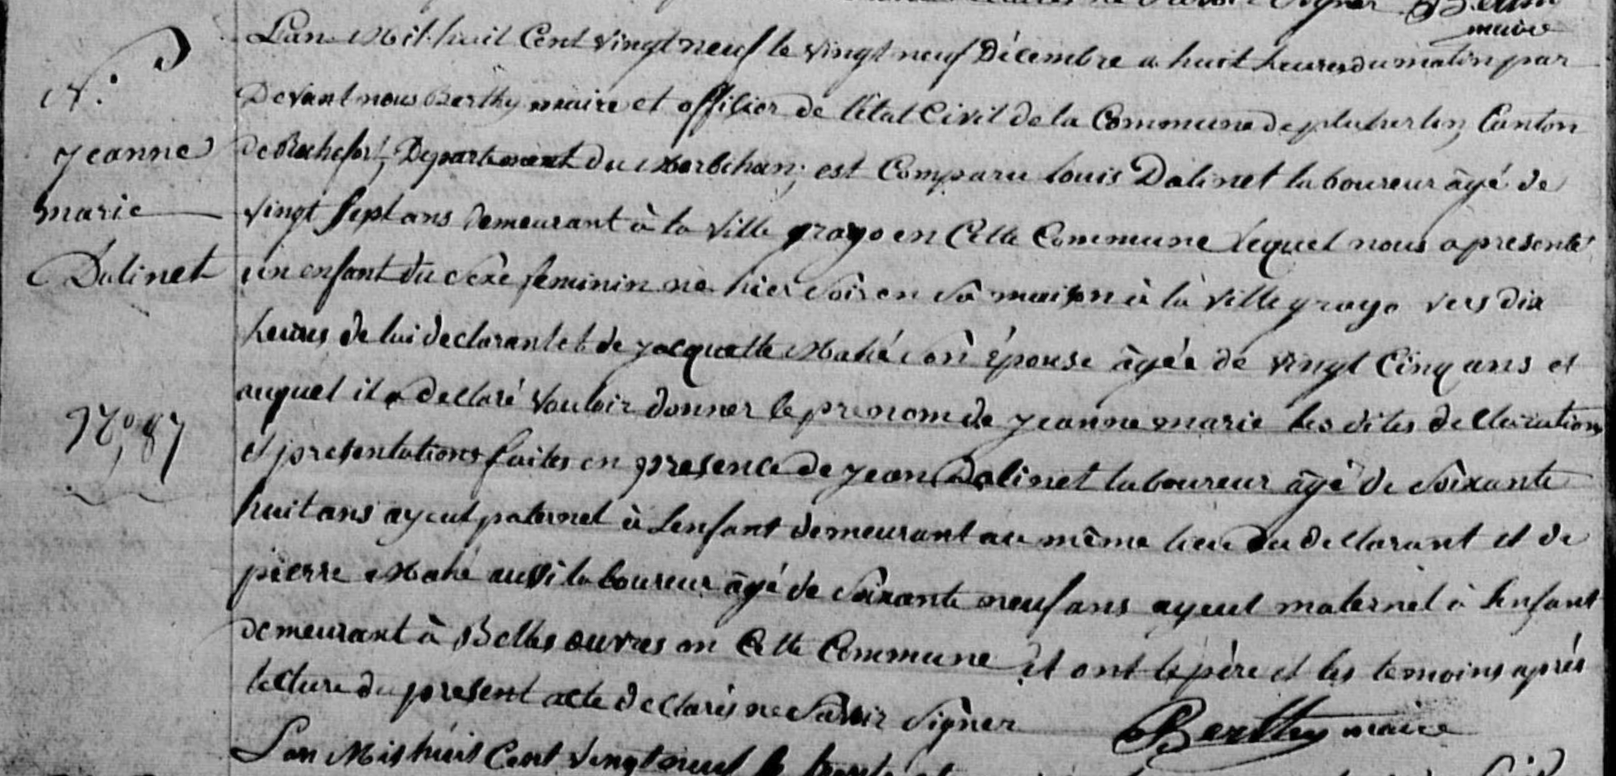 maire
L'an Mil huit Cent vingt neuf le vingt neuf Décembre a huit heures du matin par
N.
Devant nous Berthy maire et officier de l'état Civil de la Commune de pluherlin, Canton
Jeanne
de Rochefort, Departement du Morbihan; est Comparu Louis Dalinet laboureur âgé de
marie
vingt sept ans demeurant à la ville grayo en Cette Commune lequel nous a presenté
Dalinet
un enfant du sexe feminin né hier soir en sa maison à la ville grayo vers dix
heures de lui declarant et de jacquette Mahé son épouse âgée de vingt Cinq ans et
auquel il a declaré vouloir donner le prenom de jeanne marie les dites declaration
No, 87
et presentations faites en presence de jean Dalinet laboureur âgé de soixante
huit ans ayeul paternel à l'enfant demeurant au même lieu du declarant et de
pierre Mahé aussi laboureur âgé de soixante neuf ans ayeul maternel à l'enfant
demeurant à Belles ouvres en Cette Commune et ont le père et les temoins après
lecture du present acte declarés ne savoir signer Berthy maire
L'an Mil huit Cent vingt neuf le trente